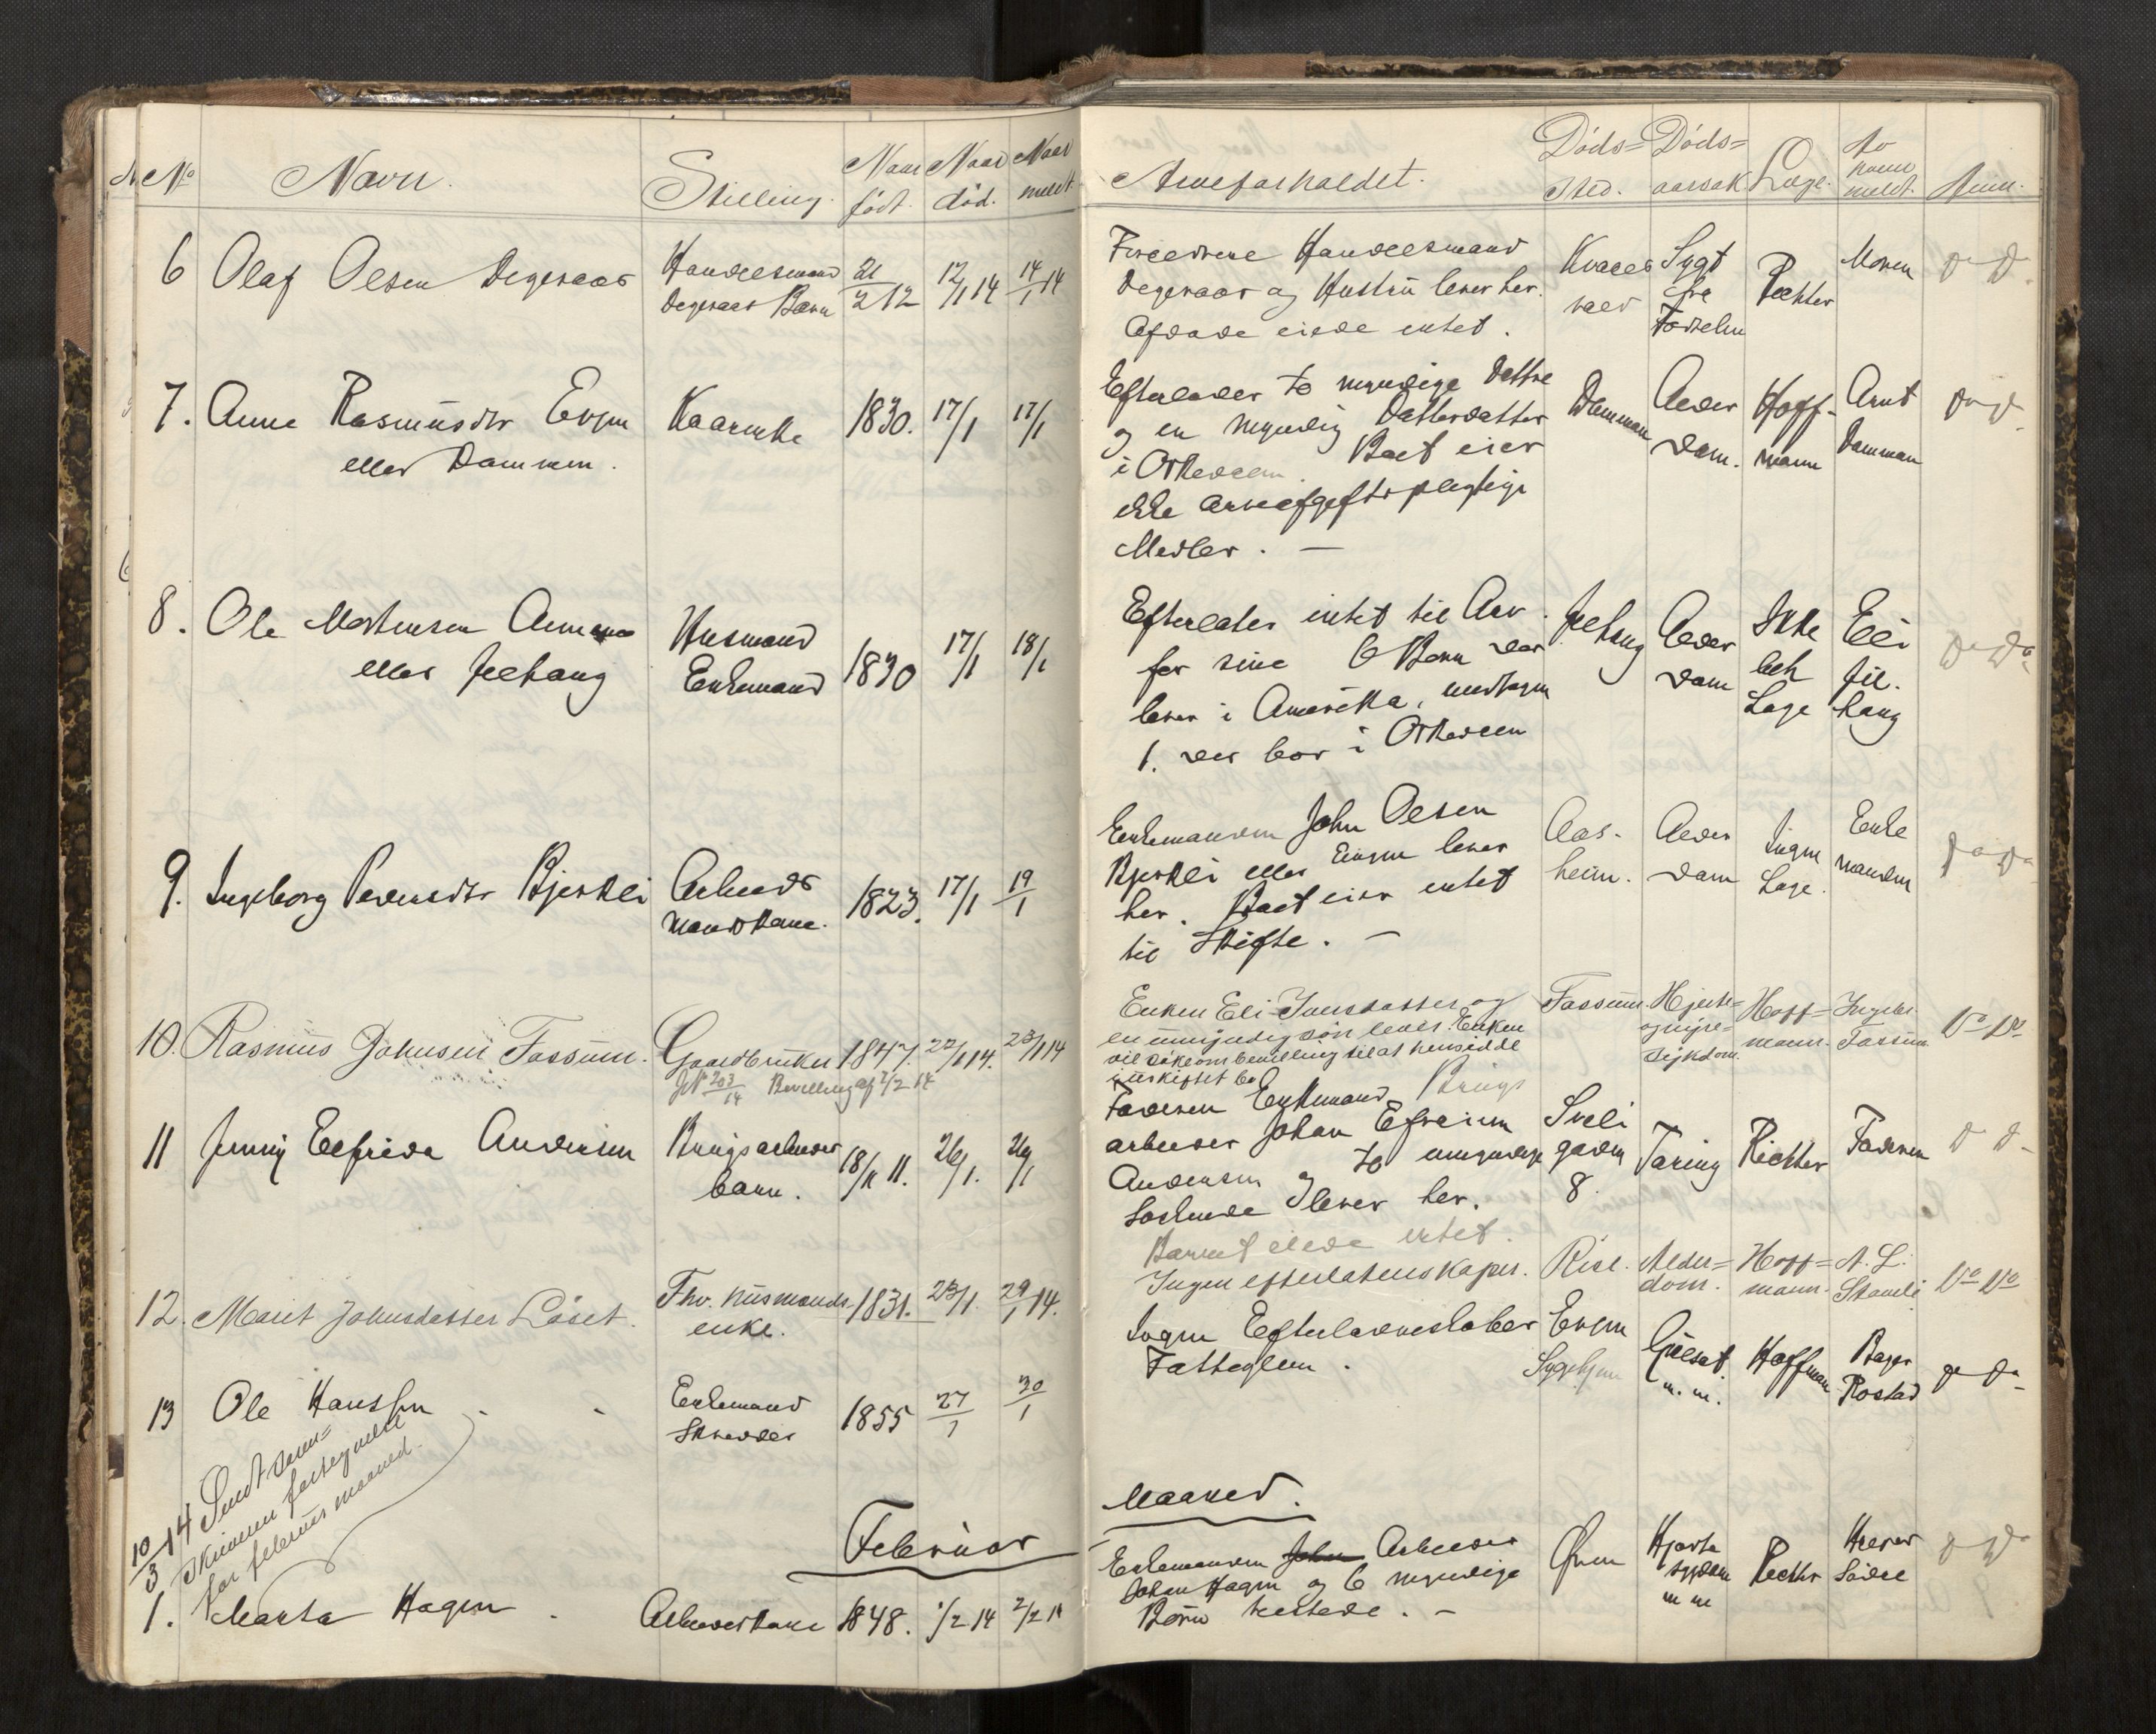 No Navn. Stilling. Naar født. Naar død. Naar meldt Arveforholdet. Døds= sted. Døds= aarsak. Læge. Av hvem meldt. Anm.
6 Olaf Olsen Degeraas
Handelsmand
Degeraas Barn
21/2 12
12/1 14
14/1 14
Forældrene Handelsmand
Degeraas og Hustru lever her.
Afdøde eiede intet.
Sygt
fra
Fødselen
Richter
Moren
D D
7. Anne Rasmusdtr Evjen
eller Dammen.
Kaarenke
1830.
17/1
17/1
Efterlader to myndige Døttre
og en myndig Datterdatter
i Orkedalen. Boet eier
ikke arveafgiftspligtige
Midler. —
Dammen
Alder
dom.
Hoff-
mann
Arnt
Dammen
D D
8. Ole Mortensen
eller Jelhaug
Husmand
Enkemand
1830
17/1
18/1
Efterlater intet til Arv
for sine 6 Børn der
lever i Amerika, undtagen
1. der bor i Orkedalen
Jelhaug
Alder
dom
Ikke
Læge
Eli
Jel.
haug
Do Do
9. Ingeborg Pedersdtr Bjerkli
Arbeids
mandskone.
1823.
17/1
19/1
Enkemanden John Olsen
Bjerkli eller Evjen lever
her. Boet eier intet
til Skifte. —
Aas-
heim.
Alder
dom
Ingen
Læge.
Enke
manden
Do Do
10. Rasmus Johnsen Fossum.
Gaardbruker
1847.
22/1 14.
23/1 14
JN 203/14 Bevilling af 7/2 14
Enken Eli Iversdatter og
en umyndig søn lever. Enken
vil søke om bevilling til at hensidde
i uskiftet bo
Fossum.
Hjerte=
og nyre=
sykdom.
Hoff=
mann.
Ingebr.
Fossum
Do Do
11 Jenny Elfrida Andersen
Brugsarbeider
barn.
18/11 11.
26/1.
26/1
Faderen Enkemand Brugs
arbeider Johan Efraim
Andersen og to umyndige
Søskende lever her.
Barnet eiede intet.
Sveli
garden
8.
Tæring
Richter
Faderen
D D
12. Marit Johnsdatter Løset.
Fhv. husmands
enke.
1831.
23/1.
29/1 14.
Ingen efterladenskaper.
Risl.
Alder=
dom.
Hoff=
mann.
A. L.
Do Do
13 Ole Hanssen
Enkemand
Skredder
1855
27/1
30/1
Ingen Efterladenskaber
Fattiglem.
Evjen
Sygehjem
Gulsot
m. m.
Hoffman
Bager
Rostad
D D
10/3 14 Sendt soren=
skriveren fortegnelse
for februar maaned.
Februar Maaned.
1. Marta Hagen
Arbeiderkone
1848.
1/2 14
2/2 14
Enkemanden John Arbeider
Johan Hagen og 6 myndige
Børn tilstede. —
Øren
Hjerte
sygdom
m m
Richter
D D